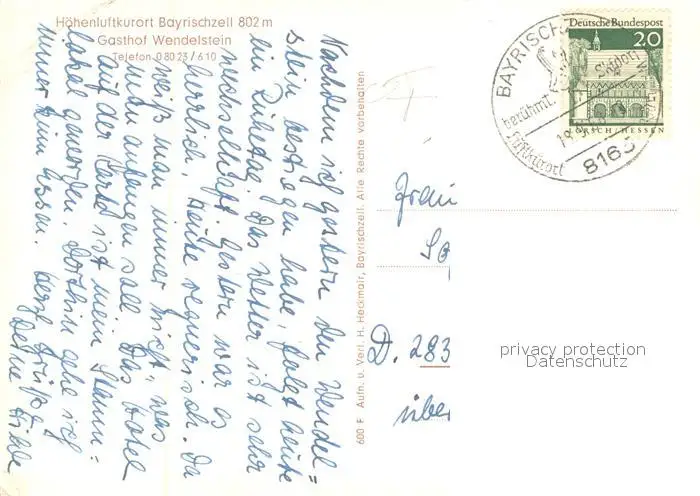 Höhenluftkurort Bayrischzell 802 m
Gasthof Wendelstein
Telefon 0 80 23 / 6 10
Nachdem ich gestern den Wendel=
stein bestiegen habe, folgt heute
ein Ruhetag. Das Wetter ist sehr
wechselhaft. Gestern war es
herrlich, heute regnerisch. Da
weiß man immer nicht, was
man anfangen soll. Das Hotel
auf der Karte ist mein Stamm=
lokal geworden. Dorthin gehe ich
immer zum Essen. Herzl. Grüße
Deine
600 F Aufn. u. Verl. H. Heckmair, Bayrischzell. Alle Rechte vorbehalten
BAYRISCH
berühmt.
Skidorf
Luftkurort
8163
Deutsche Bundespost
20
LORSCH/HESSEN
Frau
D. 283
über
privacy protection
Datenschutz